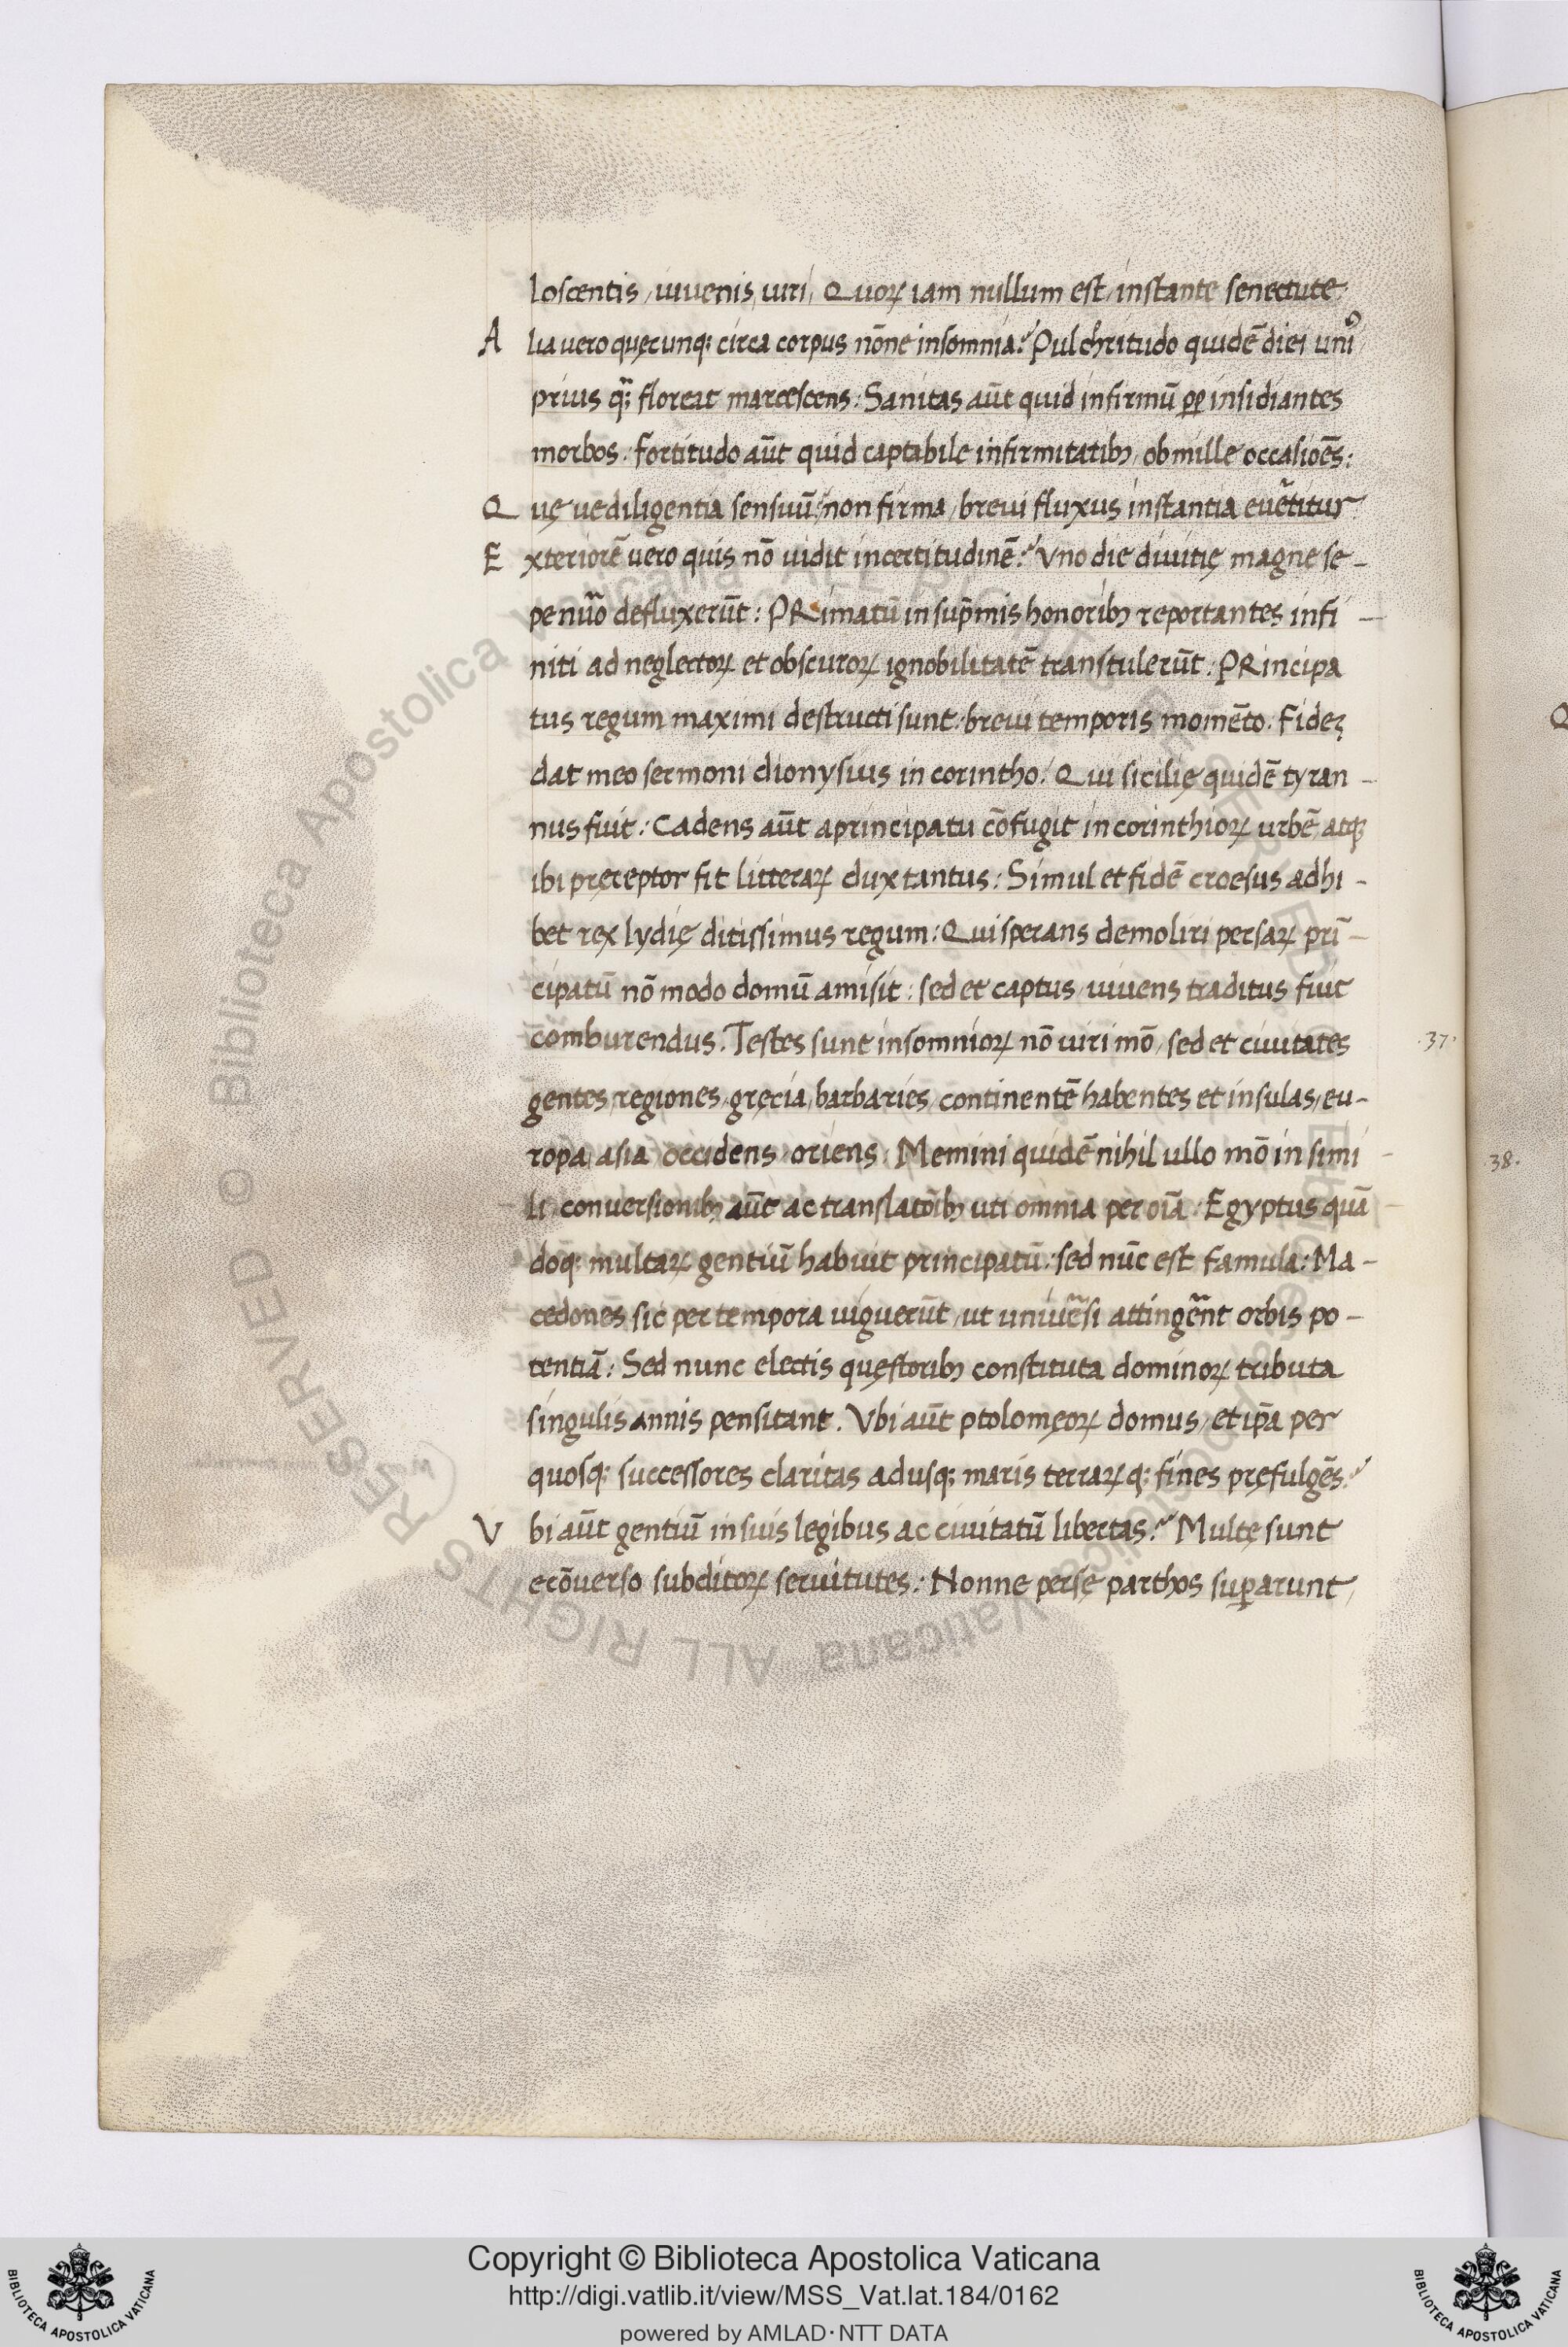 loscentis, iuvenis, viri, Quoꝝ iam nullum est, instante senectute.
A lia vero quęcunq; circa corpus nōne insomnia? Pulchritudo quidē diei uniꝰ
prius q̃; floreat marcescens: Sanitas aūt quid infirmū ꝑꝑ insidiantes
morbos. fortitudo aūt quid captabile infirmitatibꝫ, ob mille occasiōes:
Q vę ve diligentia sensuū? non firma, brevi fluxus instantia evẽtitur
E xteriorē vero quis nō vidit incertitudinē? Vno die divitię magne se –
pe nũo defluxerūt: PRimatū in sup̄mis honoribꝫ reportantes infi –
niti ad neglectoꝝ et obscuroꝝ ignobilitatē transtulerūt: PRincipa
tus regum maximi destructi sunt brevi temporis momēto. Fideꝫ
dat meo sermoni dionysius in corintho. Qui sicilię quidē tyran –
nus fuit: Cadens aūt a principatu cōfugit in corinthioꝝ urbē, atqꝫ
ibi pręceptor fit litteraꝝ dux tantus: Simul et fidē croesus adhi –
bet rex lydię ditissimus regum: Qui sperans demoliri persaꝝ prī –
cipatū nō modo domū amisit: sed et captus vivens traditus fuit
comburendus. Testes sunt insomnioꝝ nō viri mō, sed et civitates
gentes, regiones, gręcia, barbaries, continentē habentes et insulas, eu –
ropa, asia, occidens, oriens: Memini quidē nihil ullo mō in simi –
li conversionibꝫ aūt ac translatōibꝫ uti omnia per oīa: Egyptus quā –
doq; multaꝝ gentiū habuit principatū: sed nūc est famula: Ma –
cedones sic per tempora viguerūt, ut univẽsi attingẽnt orbis po –
tentiā: Sed nunc electis quęstoribꝫ constituta dominoꝝ tributa
singulis annis pensitant. Vbi aūt ptolomęoꝝ domus, et ip̄a per
quosq; successores claritas adusq; maris terraꝝq; fines pręfulgēs?
V bi aūt gentiū in suis legibus ac civitatū libertas? Multę sunt
ecōverso subditoꝝ servitutes: Nonne persę parthos suꝑarunt,
.37.
.38.
Q
Biblioteca Apostolica Vaticana ALL RIGHTS RESERVED ©
Copyright © Biblioteca Apostolica Vaticana
http://digi.vatlib.it/view/MSS_Vat.lat.184/0162
powered by AMLAD·NTT DATA
BIBLIOTECA APOSTOLICA VATICANA
BIBLIOTECA APOSTOLICA VATICANA